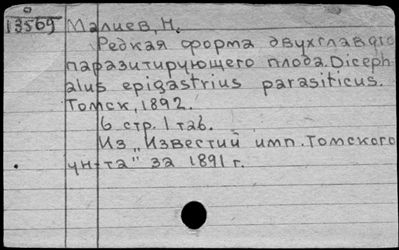 13569 Малиев, Н.
Редкая форма двухглавого
паразитирующего плода. Diceph-
alus epigastrius parasiticus.
Томск, 1892.
6 стр. 1 таб.
Из „Известий имп. Томского
ун-та" за 1891 г.